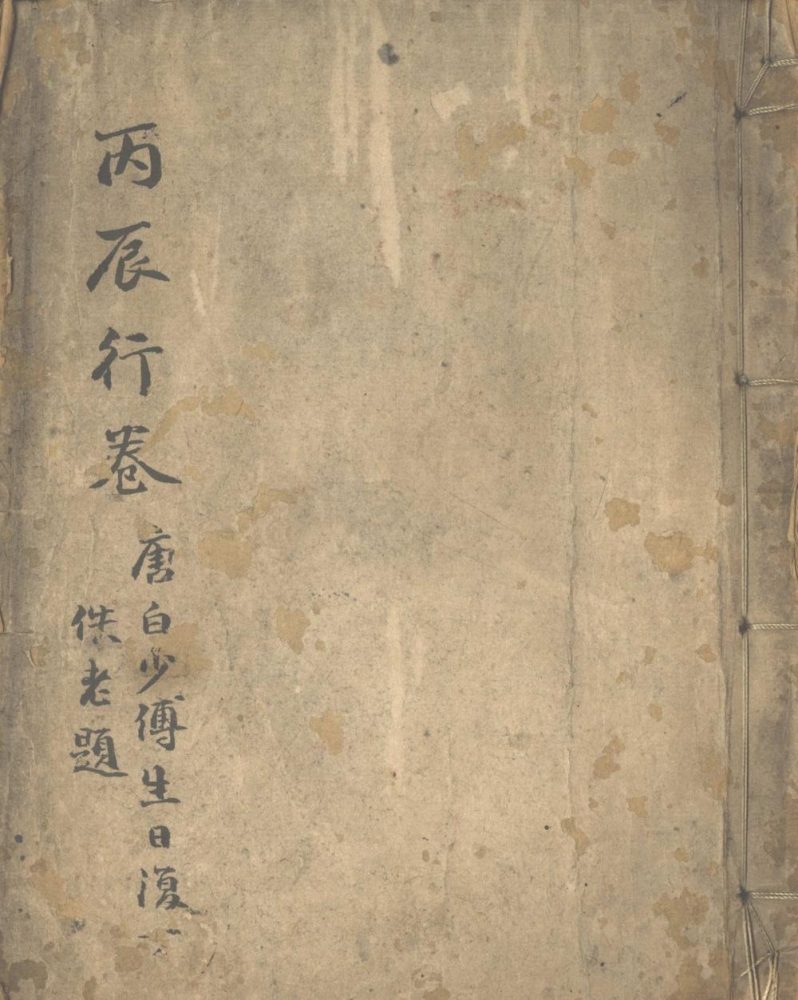 丙辰行卷
唐白少傅生日復
佚老題